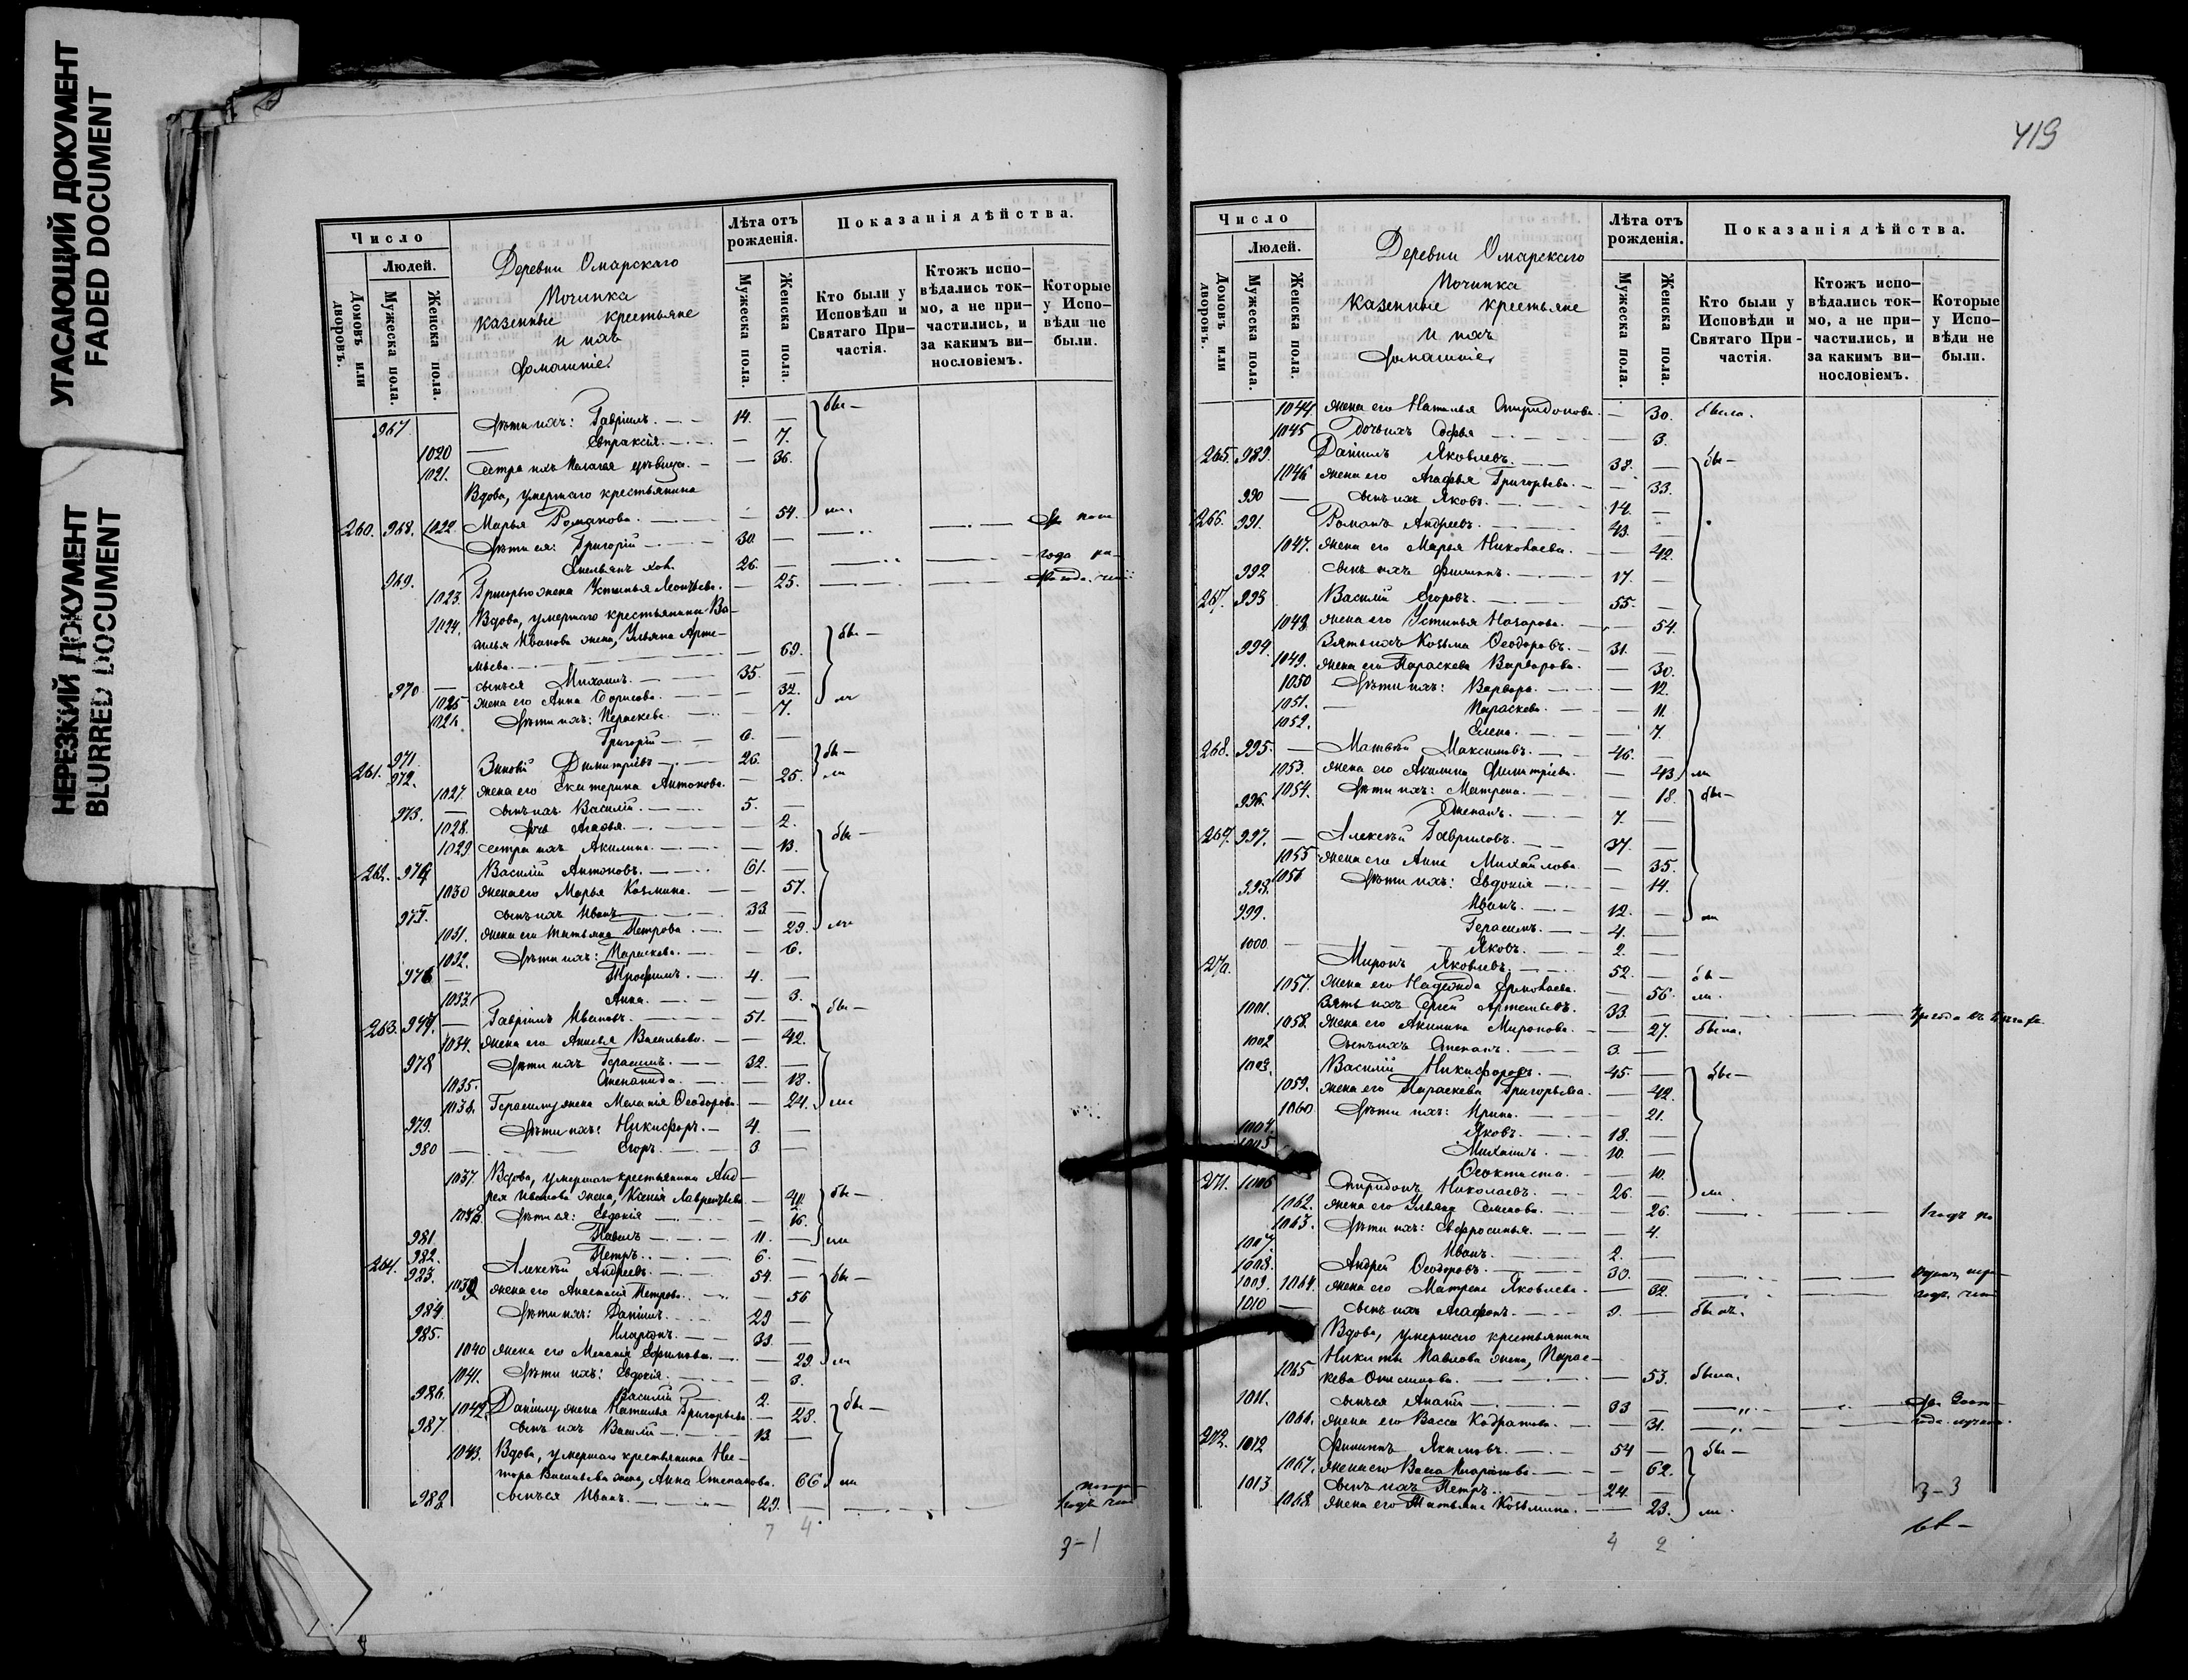 УГАСАЮЩИЙ ДОКУМЕНТ
FADED DOCUMENT
НЕРЕЗКИЙ ДОКУМЕНТ
BLURRED DOCUMENT
Число
Людей.
Домовъ или дворовъ.
Мужеска пола.
Женска пола.
Деревни Омарскаго
Починка
казенные крестьяне
и ихъ
домашніе
Лѣта отъ рожденія.
Мужеска пола.
Женска пола.
Показанія дѣйства.
Кто были у Исповѣди и Святаго Причастія.
Ктожъ исповѣдались токмо, а не причастились, и за какимъ винословіемъ.
Которые у Исповѣди не были.
967 Дѣти ихъ: Гавріилъ. 14. — бы—
1020 Евпраксія. — 7.
1021. Сестра ихъ Пелагея дѣвица. — 36.
Вдова, умершаго крестьянина
260. 968. 1022 Марья Романова. — 54. ли.
Дѣти ея: Григорій 30. —
Емельянъ хол. 26. —
969. 1023. Григорью жена Устинья Леонтьева. — 25.
1024. Вдова, умершаго крестьянина Ва-
силья Иванова жена, Ульяна Арте-
мьева. — 69. бы—
970 сынъ ея Михаилъ. 35. —
1025 жена его Анна Борисова. — 32. ли
1026. Дѣти ихъ: Параскева. — 7.
971 Григорій 6. —
261. 972. Зиновій Димитріевъ 26. — бы—
1027. жена его Екатерина Антонова. — 25. ли
973. сынъ ихъ Василій. 5. —
1028. дочь Агафья. — 2.
1029 сестра ихъ Акилина. — 13. бы—
262. 974 Василій Антоновъ. 61. —
1030 жена его Марья Козмина. — 57.
975. сынъ ихъ Иванъ 33. —
1031. жена его Татьяна Петрова. — 29. ли
1032. Дѣти ихъ: Параскева. — 6.
976 Трофимъ. 4. —
1033. Анна. — 3.
263. 977. Гавріилъ Ивановъ. 51. — бы—
1034. жена его Анисья Васильева. — 42.
978 Дѣти ихъ Герасимъ. 32. —
1035. Степанида. — 18.
1036. Герасиму жена Меланія Ѳеодорова. — 24. ли
979. Дѣти ихъ: Никифоръ. 4. —
980 Егоръ. 3 —
1037. Вдова, умершаго крестьянина Анд-
рея Иванова жена, Ксенія Лаврентьева — 42 бы—
1038. Дѣти ея: Евдокія — 16.
981 Павелъ 11. — ли
982. Петръ. 6. —
264. 983. Алексѣй Андреевъ. 54. — бы—
1039 жена его Анастасія Петрова. — 56
984. Дѣти ихъ: Даніилъ. 29 —
985. Иларіонъ. 33. —
1040 жена его Меланія Ефимова. — 29. ли
1041. Дѣти ихъ: Евдокія. — 3.
986. Василій 2. —
1042. Даніилу жена Наталья Григорьева. — 28. бы—
987. сынъ ихъ Василій 13. —
1043. Вдова, умершаго крестьянина Не-
стора Васильева жена, Анна Степанова. 66 ли
988. сынъ ея Иванъ. 29. —
7 4
3-1
419
Число
Людей.
Домовъ или дворовъ.
Мужеска пола.
Женска пола.
Деревни Омарскаго
Починка
казенные крестьяне
и ихъ
домашніе
Лѣта отъ рожденія.
Мужеска пола.
Женска пола.
Показанія дѣйства.
Кто были у Исповѣди и Святаго Причастія.
Ктожъ исповѣдались токмо, а не причастились, и за какимъ винословіемъ.
Которые у Исповѣди не были.
1044. жена его Наталья Спиридонова. — 30. была.
1045 Дочь ихъ Софья — 3.
265. 989. Даніилъ Яковлевъ. 38. — бы—
1046 жена его Агафья Григорьева. — 33.
990 сынъ ихъ Яковъ. 14. —
266. 991. Романъ Андреевъ. 43. —
1047. жена его Марья Николаева. — 42.
992 сынъ ихъ Филиппъ. 17. —
267. 993 Василій Егоровъ. 55. —
1048 жена его Устинья Назарова. — 54.
994 Зять ихъ Козьма Ѳеодоровъ. 31. —
1049. жена его Параскева — 30.
1050 Дѣти ихъ: Варвара. — 12.
1051. Параскева. — 11.
1052. Елена. — 7.
268. 995. Матвѣй Максимовъ. 46. —
1053. жена его Акилина Димитріева. — 43. ли
1054. Дѣти ихъ: Матрена. — 18. бы—
996. Степанъ. 7. —
269. 997. Алексѣй Гавриловъ. 37. —
1055 жена его Анна Михайлова. — 35.
1056 Дѣти ихъ: Евдокія — 14.
998. Иванъ. 12. — ли
999. Герасимъ. 4. —
1000 Яковъ. 2. —
270. Миронъ Яковлевъ. 52. — бы—
1057. жена его Надежда Ермолаева. — 56. ли.
1001. Зять ихъ Сергій Артемьевъ. 33. —
1058. жена его Акилина Миронова. — 27. была.
1002 сынъ ихъ Степанъ. 3. —
1003. Василій Никифоровъ. 45. — бы—
1059. жена его Параскева Григорьева. — 42.
1060 Дѣти ихъ: Ирина. — 21.
1004. Яковъ. 18. —
1005 Михаилъ. 10. —
Ѳеоктиста. — 10.
271. 1006 Спиридонъ Николаевъ. 26. — ли
1062. жена его Ульяна Семенова. — 26. 1 годъ по
1063. Дѣти ихъ: Евфросинья. — 4.
1007. Иванъ. 2. —
1008. Андрей Ѳеодоровъ. 30. —
1009. 1064. жена его Матрена Яковлева. — 32.
1010 сынъ ихъ Агафонъ. 9. — былъ.
Вдова, умершаго крестьянина
Никиты Павлова жена, Парас-
1065 кева Онисимова. — 53. была.
1011. сынъ ея Ананій 33 —
1066. жена его Васса Кодратова. — 31.
272. 1012 Филиппъ Якимовъ. 54 — бы—
1067. жена его Васса — 62.
1013 сынъ ихъ Петръ. 24. —
1068. жена его Татьяна Козьмина. — 23. ли.
3-3
4 2